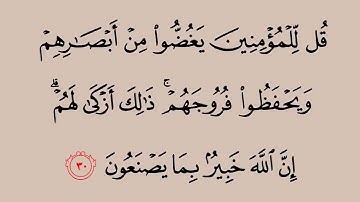 قُل لِّلْمُؤْمِنِينَ يَغُضُّوا۟ مِنْ أَبْصَـٰرِهِمْ
وَيَحْفَظُوا۟ فُرُوجَهُمْ ۚ ذَٰلِكَ أَزْكَىٰ لَهُمْ ۗ
إِنَّ ٱللَّهَ خَبِيرٌۢ بِمَا يَصْنَعُونَ ٣٠